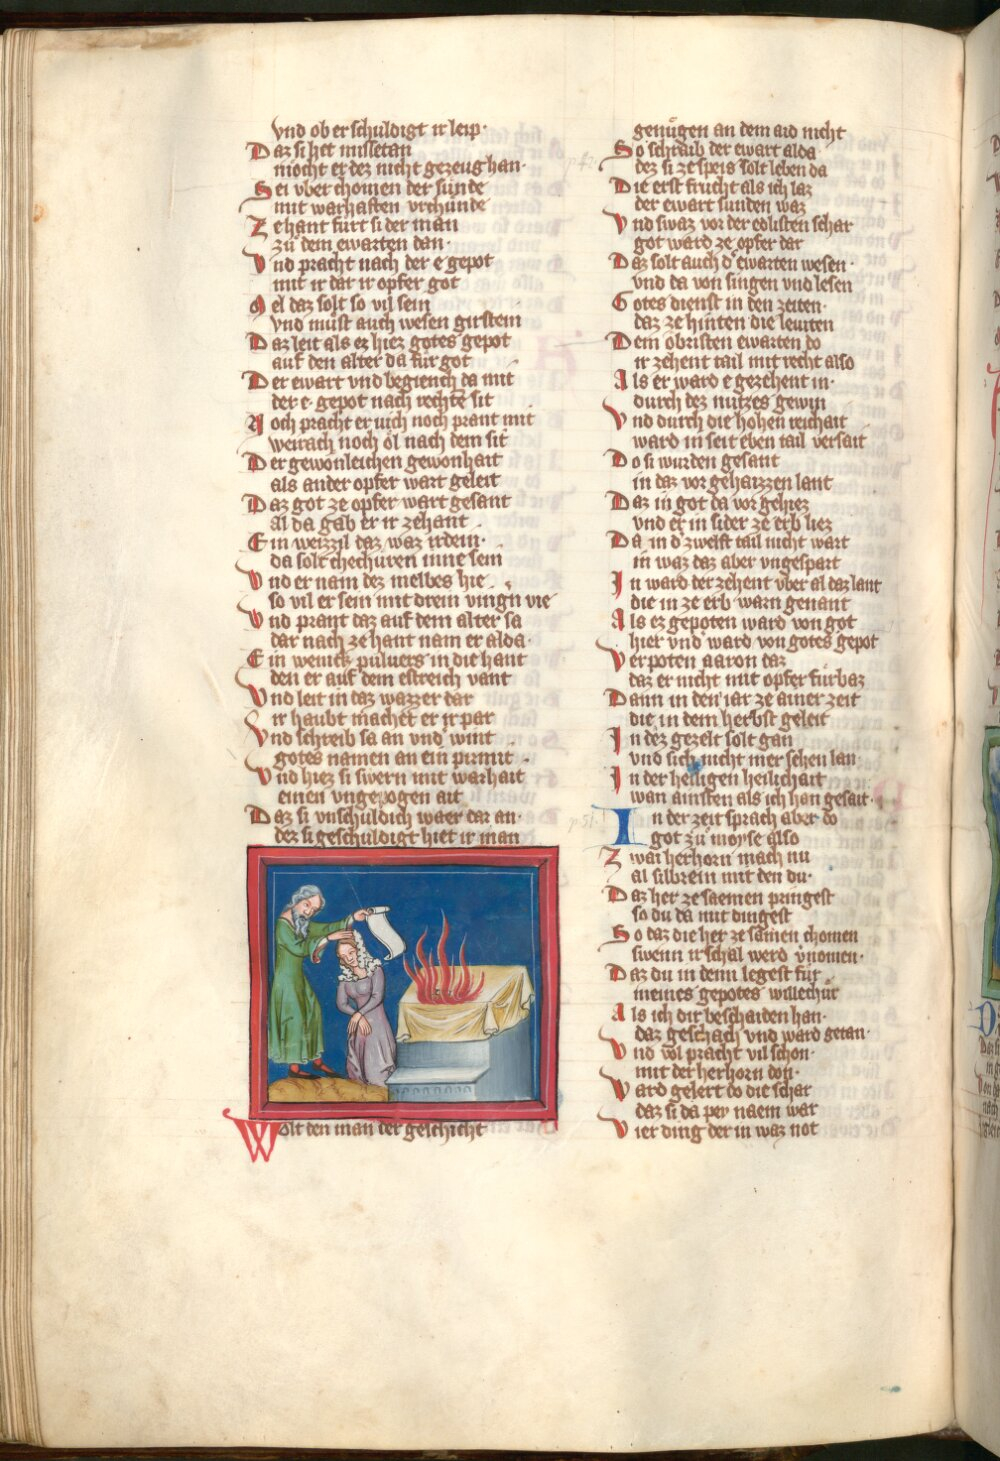 vnd ob er schuldigt ir leip·
Daz si het missetan
mocht er dez nicht gezeug han·
Sei vber chomen der sunde
mit warhaften vrchunde
Zehant furt si der man
zů dem ewarten dan
Vnd pracht nach der e gepot
mit ir dar ir opfer got
Mel daz solt so vil sein
vnd můst auch wesen girstein
Daz leit als ez hiez gotes gepot
auf den alter da für got
Der ewart vnd begiench da mit
der e· gepot nach rechte sit
Noch pracht er nich noch prant mit
weirach noch öl nach dem sit
Der gewonleichen gewonhait
als ander opfer wart geleit
Daz got ze opfer wart gesant
al da gab er ir zehant
Ein weizzil daz waz irdein·
da solt chechuren inne sein
Vnd er nam dez melbes hie
so vil er sein mit drein vingn vie
Vnd prant daz auf dem alter sa
dar nach ze hant nam er alda·
Ein wenick puluers in die hant
den er auf dem estreich vant
Vnd leit in daz wazzer dar
ir haubt machet er ir par
Vnd schreib sa an vnd wint
gotes namen an ein pirmit
Vnd hiez si swern mit warhait
einen vngepogen ait
Daz si vnschuldich waer dar an·
dez si geschuldigt hiet ir man
Wolt den man der geschicht
genůgen an dem aid nicht
So schraib der ewart alda
dez si ze speis solt leben da
Die erst frucht als ich laz
der ewart sunden waz
Vnd swaz vor der edlisten schar
got ward ze opfer dar
Daz solt auch d' ewarten wesen·
vnd da von singen vnd lesen
Gotes dienst in den zeiten·
daz ze hinten die leuiten
Dem obristen ewarten do
ir zehent tail mit recht also
Als er ward e gezehent in·
durch dez nutzes gewin
Vnd durch die hohen reichait
ward in seit eben tail versait
Do si wurden gesant
in daz vor gehaizzen lant
Daz in got da vor gehiez
vnd er in sider ze erb liez
Da in d' zwelft tail nicht wart
in waz daz aber vngespart
In ward der zehent vber al daz lant
die in ze erb warn genant
Als ez gepoten ward von got
hier vnd ward von gotes gepot
Verpoten aaron daz
daz er nicht mit opfer fürbaz
Dann in den iar ze ainer zeit
die in dem herbst geleit
In dez gezelt solt gan
vnd sich nicht mer sehen lan
In der heiligen heilichait
wan ainsten als ich han gesait·
In der zeit sprach aber do
got zů moyse also
Zwai herhorn mach nu
al silbrein mit den du·
Daz her ze saemen pringest
so du da mit dingest
So daz die her ze samen chomen
swenn ir schal werd v'nomen·
Daz du in denn legest für
meines gepotes willechür
Als ich dir beschaiden han·
daz geschach vnd ward getan·
Vnd vol pracht vil schon
mit der herhorn don·
Ward gelert do die schar
daz si da pey naem war
Vier ding der in waz not